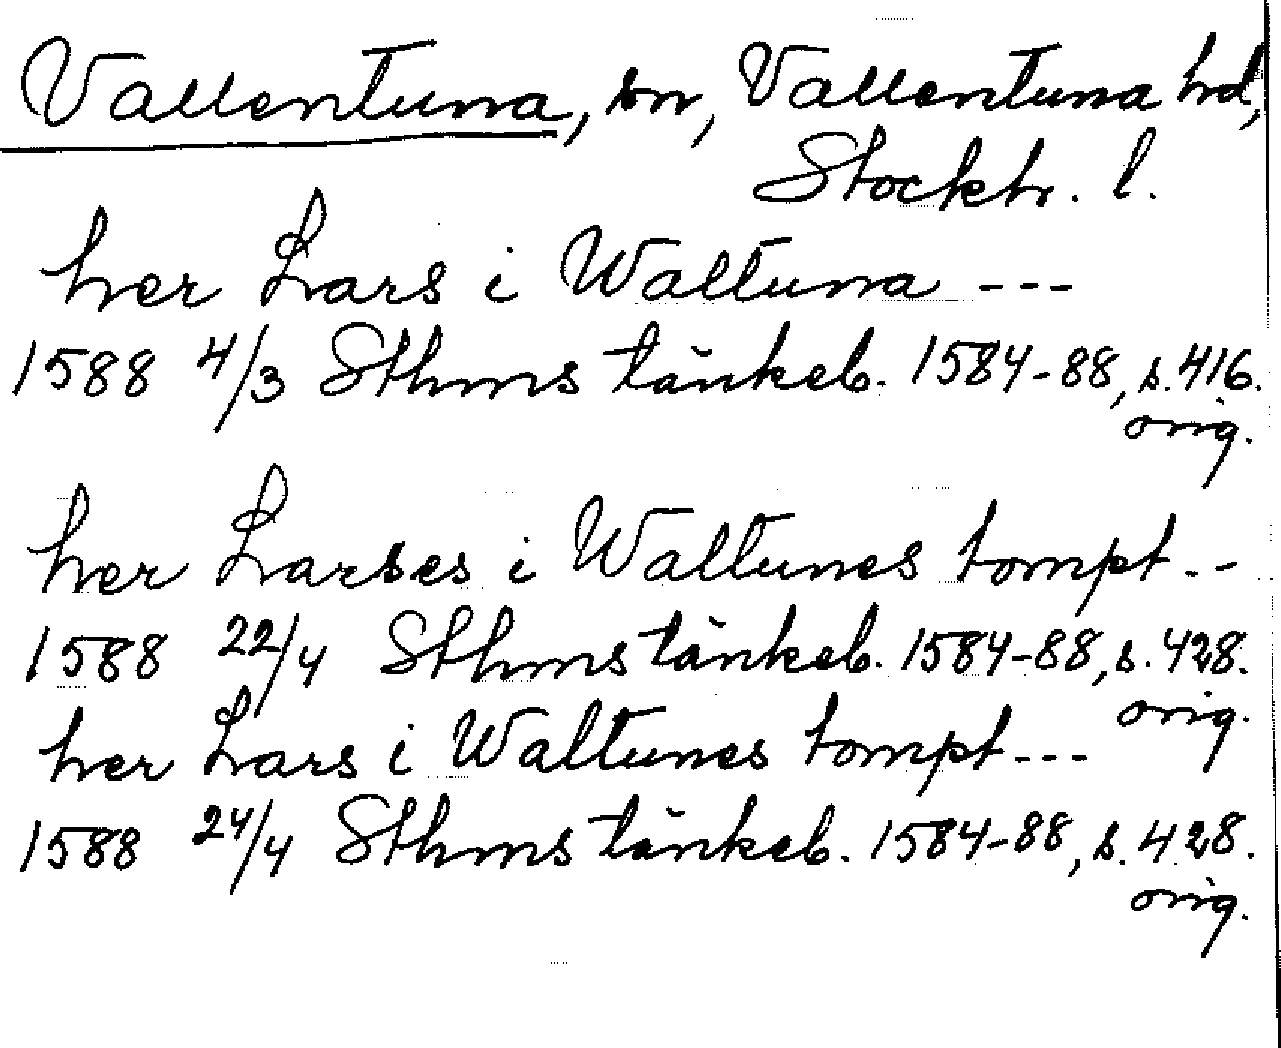 Vallentuna, sn, Vallentuna hd,
Stockh. l.
her Lars i Waltuna ---
1588 4/3 Sthms tänkeb. 1584-88, s. 416.
orig.
her Larses i Waltunes tompt --
1588 22/4 Sthms tänkeb. 1584-88, s. 428.
orig.
her Lars i Waltunes tompt ---
1588 24/4 Sthms tänkeb. 1584-88, s. 428.
orig.